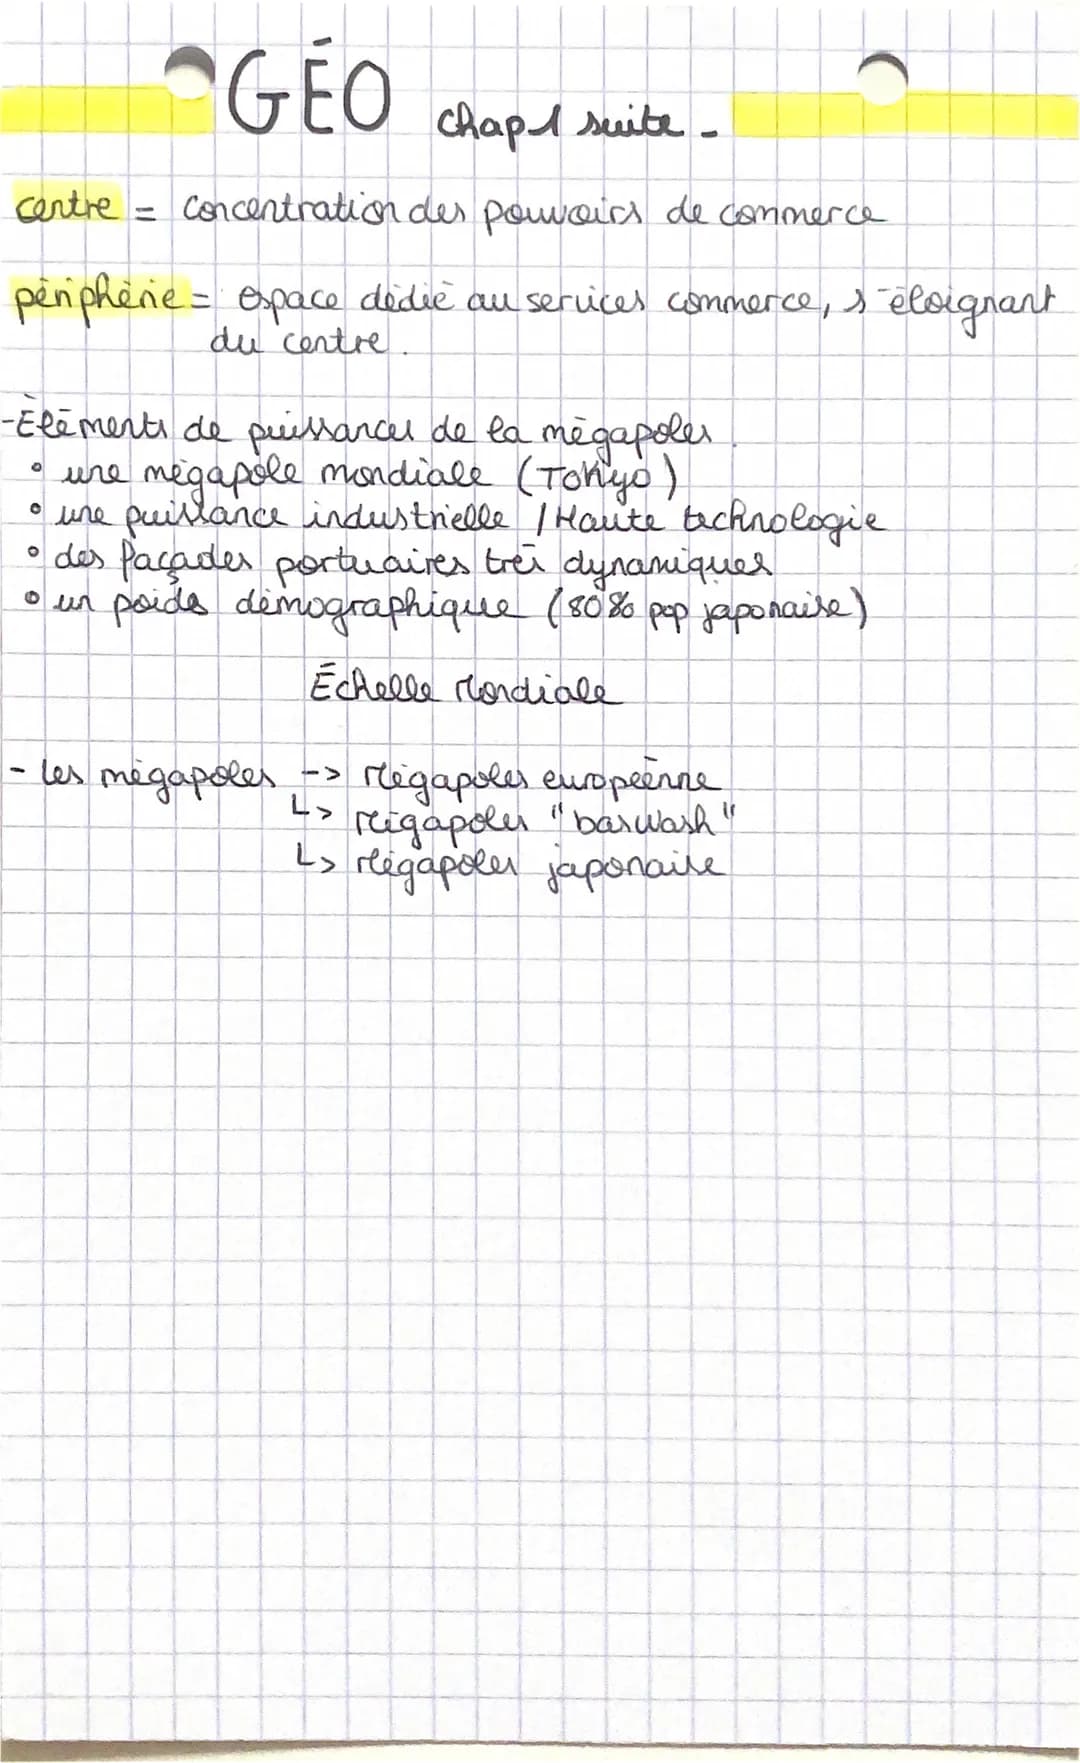 GÉO chap 1 suite -
centre = concentration des pouvoirs de commerce
périphérie = espace dédié au services commerce, s'éloignant
du centre.
- Éléments de puissances de la mégapoles.
• une mégapole mondiale (Tokyo)
• une puissance industrielle / Haute technologie
• des façades portuaires très dynamiques
• un poids démographique (80% pop japonaise)
Échelle Mondiale
- les mégapoles -> Mégapoles européenne
↳ Mégapoles "boswash"
↳ Mégapoles japonaise